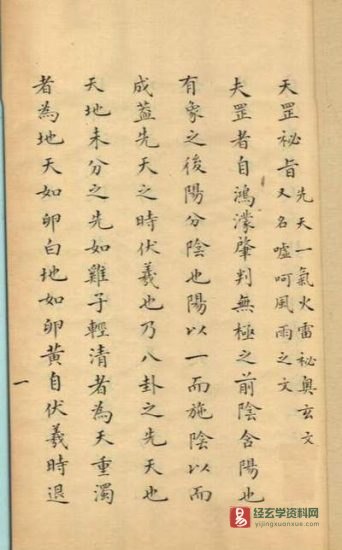 天罡祕旨
先天一氣火雷祕奧玄文
又名噓呵風雨之文
夫罡者自鴻濛肇判無極之前陰含陽也
有象之後陽分陰也陽以一而施陰以而
成蓋先天之時伏羲也乃八卦之先天也
天地未分之先如雞子輕清者為天重濁
者為地天如卵白地如卵黃自伏羲時退
一
易
经玄学资料网
yijingxuanxue.com